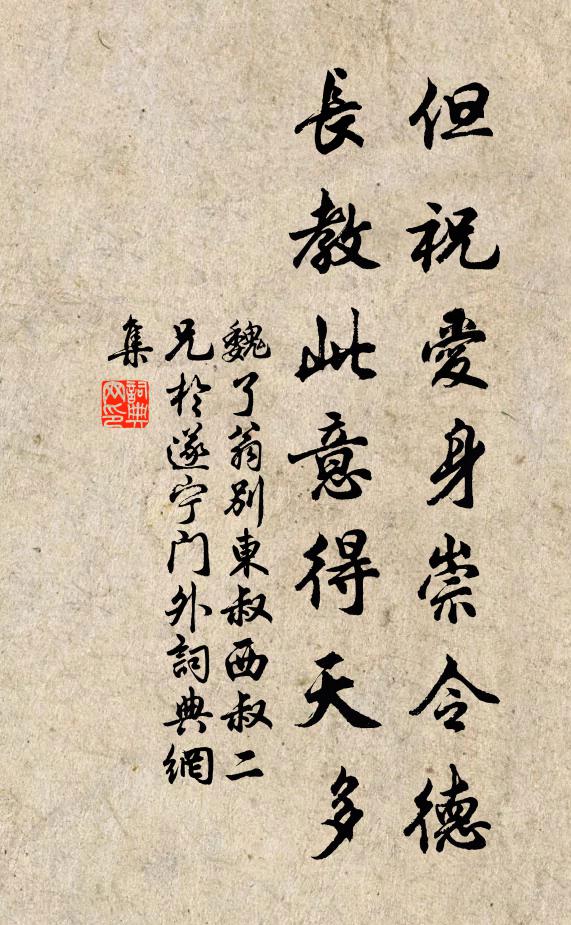 但祝愛身崇令德
長教此意得天多
魏了翁別東叔西叔二
兄於遂宁門外詞典網
集
詞典
网印